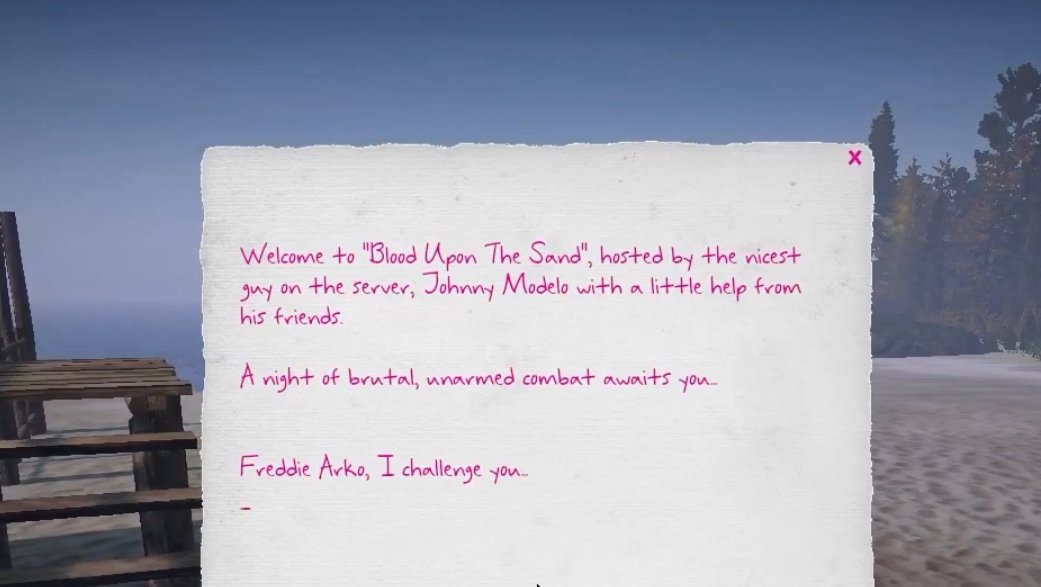 x
Welcome to "Blood Upon The Sand", hosted by the nicest
guy on the server, Johnny Modelo with a little help from
his friends.
A night of brutal, unarmed combat awaits you...
Freddie Arko, I challenge you...
-